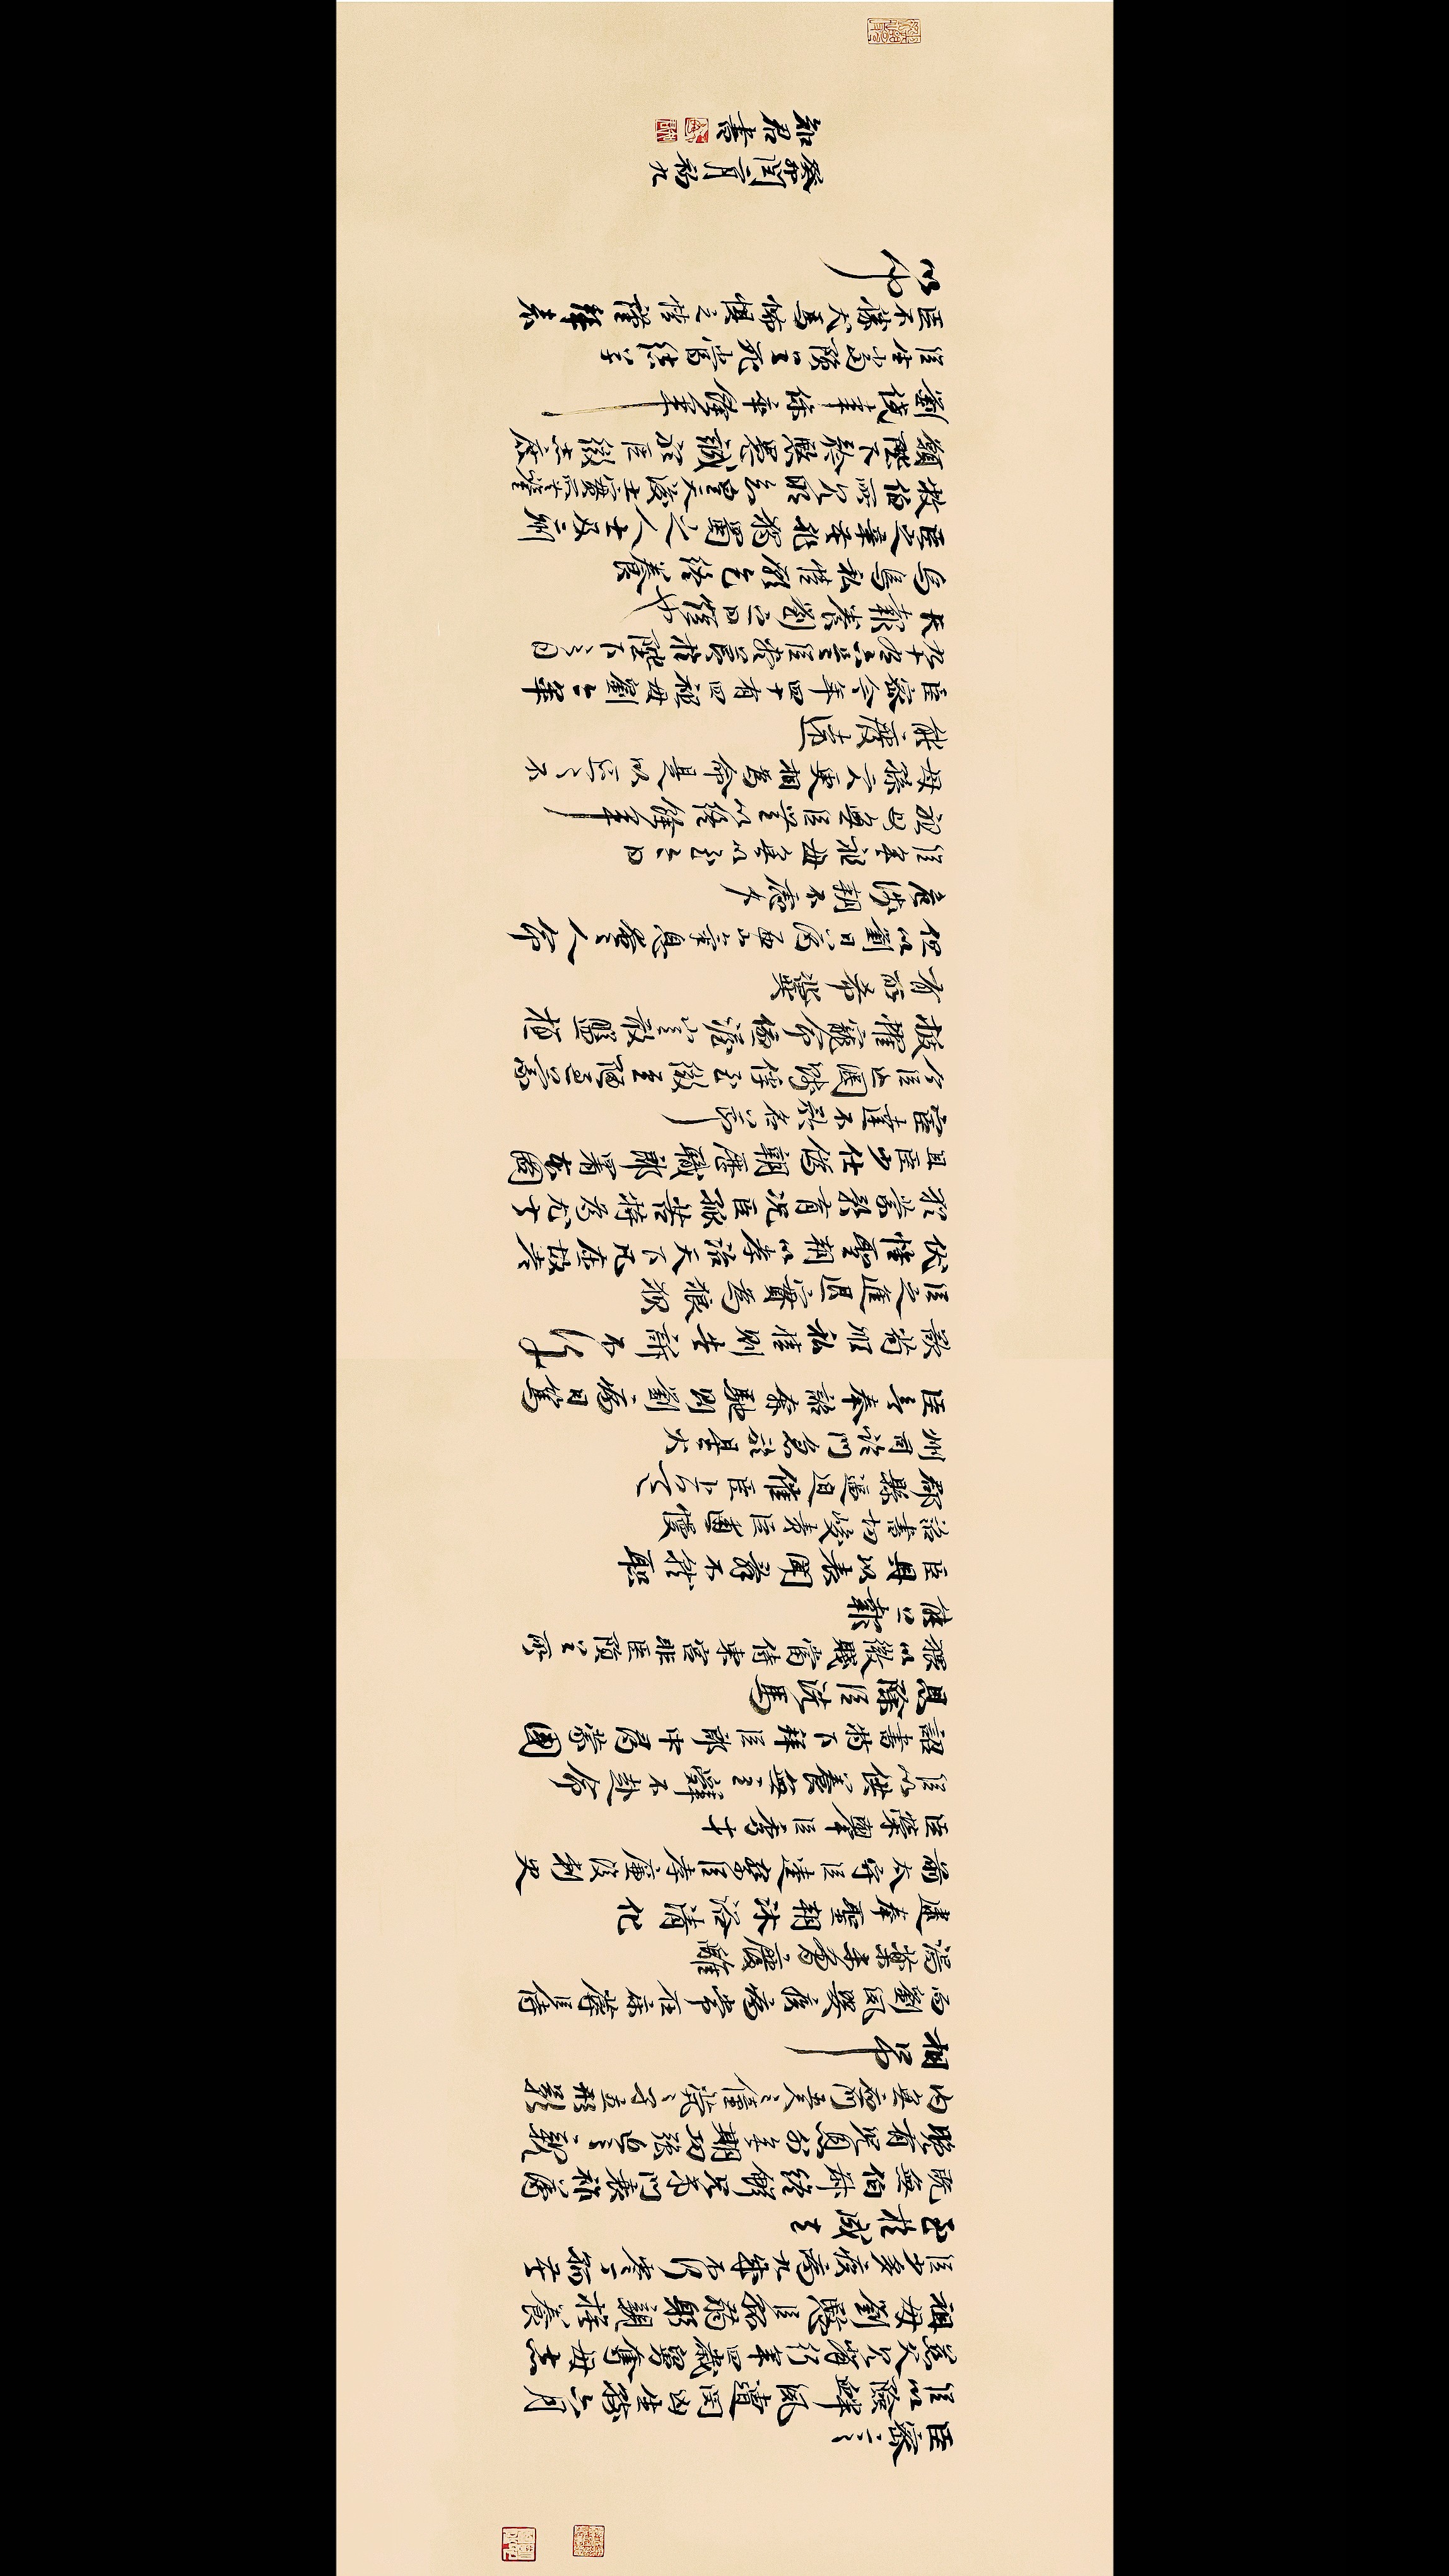 臣密言
臣以險釁夙遭閔凶生孩六月
慈父見背行年四歲舅奪母志
祖母劉愍臣孤弱躬親撫養
臣少多疾病九歲不行零丁孤苦
至於成立
既無伯叔終鮮兄弟門衰祚薄
晚有兒息外無期功強近之親
內無應門五尺之僮煢煢孑立形影
相弔
而劉夙嬰疾病常在床蓐臣侍
湯藥未嘗廢離
逮奉聖朝沐浴清化
前太守臣逵察臣孝廉後刺史
臣榮舉臣秀才
臣以供養無主辭不赴命
詔書特下拜臣郎中尋蒙國
恩除臣洗馬
猥以微賤當侍東宮非臣隕首所
能上報
臣具以表聞辭不就職
詔書切峻責臣逋慢
郡縣逼迫催臣上道
州司臨門急於星火
臣欲奉詔奔馳則劉病日篤
欲苟順私情則告訴不許
臣之進退實為狼狽
伏惟聖朝以孝治天下凡在故老
猶蒙矜育況臣孤苦特為尤甚
且臣少仕偽朝歷職郎署本圖
宦達不矜名節
今臣亡國賤俘至微至陋過蒙
拔擢寵命優渥豈敢盤桓
有所希冀
但以劉日薄西山氣息奄奄人命
危淺朝不慮夕
臣無祖母無以至今日
祖母無臣無以終餘年
母孫二人更相為命是以區區不
能廢遠
臣密今年四十有四祖母劉今年
九十有六是臣盡節於陛下之日
長報養劉之日短也
烏鳥私情願乞終養
臣之辛苦非獨蜀之人士及二州
牧伯所見明知皇天后土實所共鑒
願陛下矜愍愚誠聽臣微志庶
劉僥幸保卒餘年
臣生當隕首死當結草
臣不勝犬馬怖懼之情謹拜表
以聞
癸卯閏二月初九
知君書